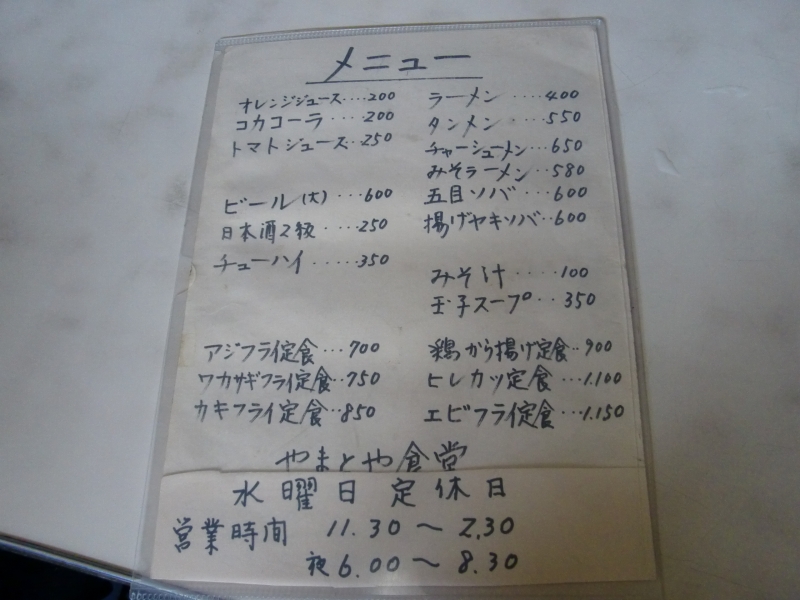 メニュー
オレンジジュース....200
コカコーラ ....200
トマトジュース..250
ビール(大)...600
日本酒2級 ....250
チューハイ .....350
アジフライ定食...700
ワカサギフライ定食..750
カキフライ定食..850
ラーメン ....400
タンメン ....550
チャーシューメン..650
みそラーメン..580
五目ソバ...600
揚げヤキソバ..600
みそ汁.....100
玉子スープ..350
鶏から揚げ定食..900
ヒレカツ定食...1.100
エビフライ定食...1.150
やまとや食堂
水曜日定休日
営業時間 11.30～2.30
夜6.00～8.30